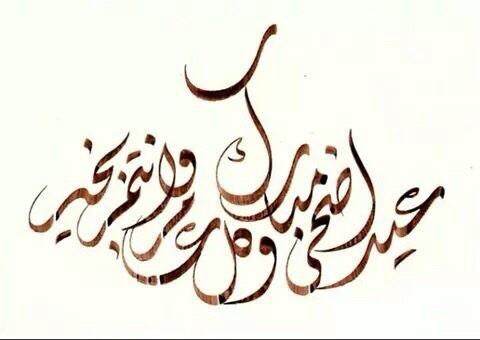 عيد اضحى مبارك وكل عام وانتم بخير